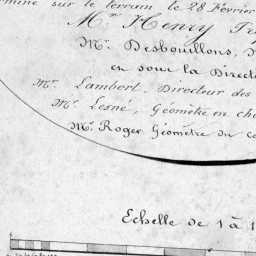 miné sur le terrain le 28 Février
Mr. Henry
Mr. Desbouillons,
en sour la Direct
Mr. Lambert, Directeur des
Mr. Lesné, Géomètre en ch
Mr. Roger Géomètre du c
Echelle de 1 à 1